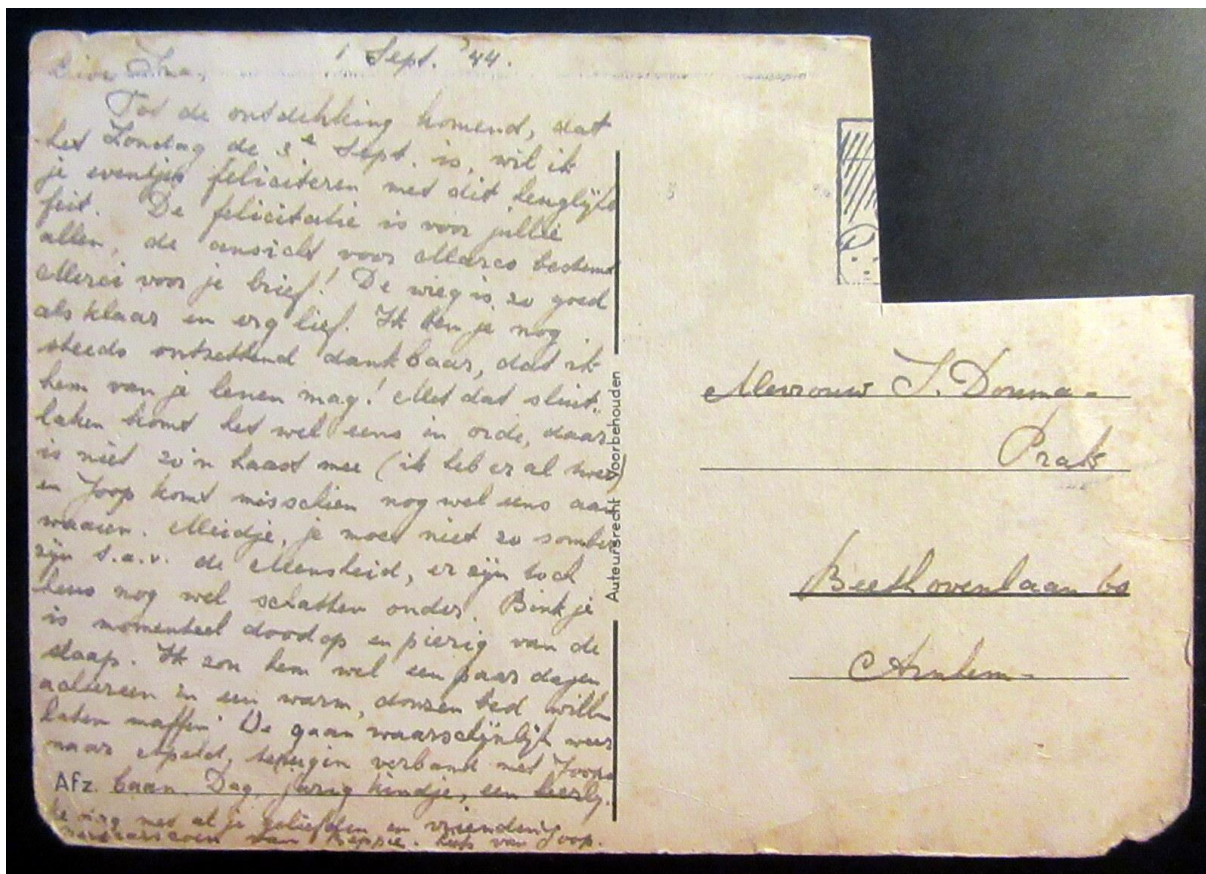 1 Sept. '44.
Lieve Ina,
Tot de ontdekking komend, dat
het Zondag de 3e Sept. is, wil ik
je eventjes feliciteren met dit heuglijke
feit. De felicitatie is voor jullie
allen, de ansicht voor Marco bestemd
Merci voor je brief! De wieg is zo goed
als klaar en erg lief. Ik ben je nog
steeds ontzettend dankbaar, dat ik
hem van je lenen mag! Met dat
laken komt het wel eens in orde, daar
is niet zo'n haast mee (ik heb er al twee)
en Joop komt misschien nog wel eens aan
waaien. Meidje, je moet niet zo somber
zijn t.a.v. de Mensheid, er zijn toch
heus nog wel schatten onder. Binkje
is momenteel doodop en pierig van de
slaap. Ik zou hem wel een paar dagen
achtereen in een warm, donzen bed willen
laten maffen. We gaan waarschijnlijk weer
naar in verband met Joops
Afz. baan. Dag, jarig kindje, een heerlij-
ke dag met al je geliefden en vrienden
van Beppie. van Joop.
Auteursrecht voorbehouden
Mevrouw I. Douma-
Prak
Beethovenlaan 60
Arnhem